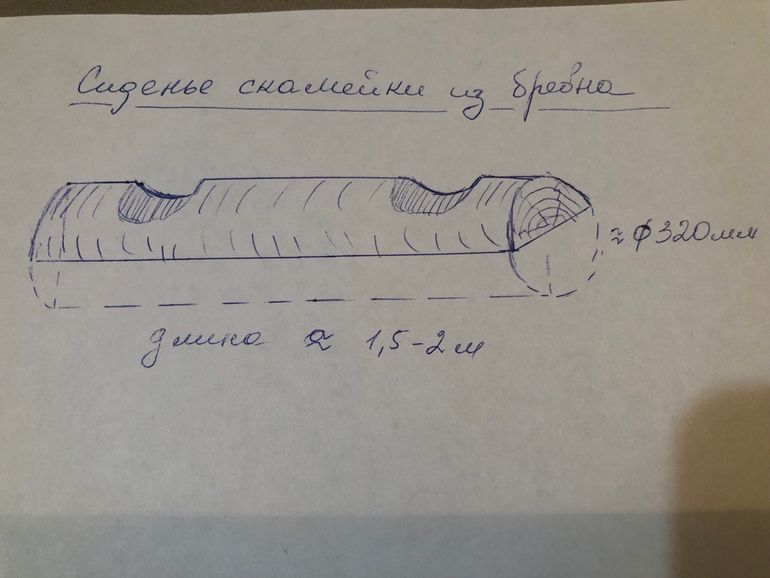 Сиденье скамейки из бревна
≈ ϕ320мм
длина ≈ 1,5-2м